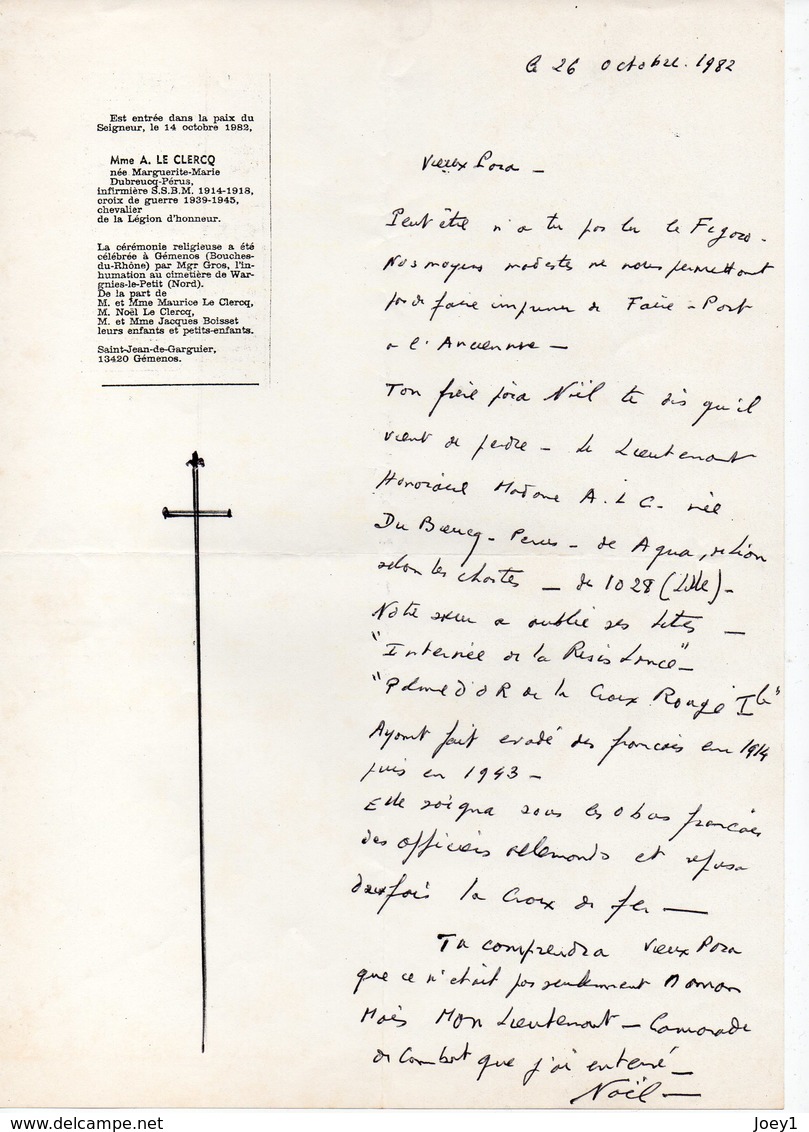 le 26 octobre. 1982
Est entrée dans la paix du
Seigneur, le 14 octobre 1982,
Mme A. LE CLERCQ
née Marguerite-Marie
Dubreucq-Pérus,
infirmière S.S.B.M. 1914-1918,
croix de guerre 1939-1945,
chevalier
de la Légion d'honneur.
La cérémonie religieuse a été
célébrée à Gémenos (Bouches-
du-Rhône) par Mgr Gros, l'in-
humation au cimetière de War-
gnies-le-Petit (Nord).
De la part de
M. et Mme Maurice Le Clercq,
M. Noël Le Clercq,
M. et Mme Jacques Boisset
leurs enfants et petits-enfants.
Saint-Jean-de-Garguier,
13420 Gémenos.
Vieux Para -
Peut être n'a tu pas lu le Figaro.
Nos moyens modestes ne nous permettant
pas de faire imprimer de Faire-Part
a l'Ancienne -
Ton frère para Noël te dis qu'il
vient de perdre - Le Lieutenant
Honoraire Madame A. L C. née
Du Breucq - Perus - de Aqua,
selon les chartes - de 1028 (Lille) -
Notre sœur a oublié ses titres -
"Internée de la Résistance" -
"Palme d'OR de la Croix Rouge Ile"
Ayant fait evadé des francais en 1914
puis en 1943 -
Elle soigna sous les obus francais
des officiers allemands et refusa
deux fois la Croix de fer -
Tu comprendra vieux Para
que ce n'était pas seulement Maman
Mais Mon Lieutenant - Camarade
de Combat que j'ai enterré -
Noël -
Joey1